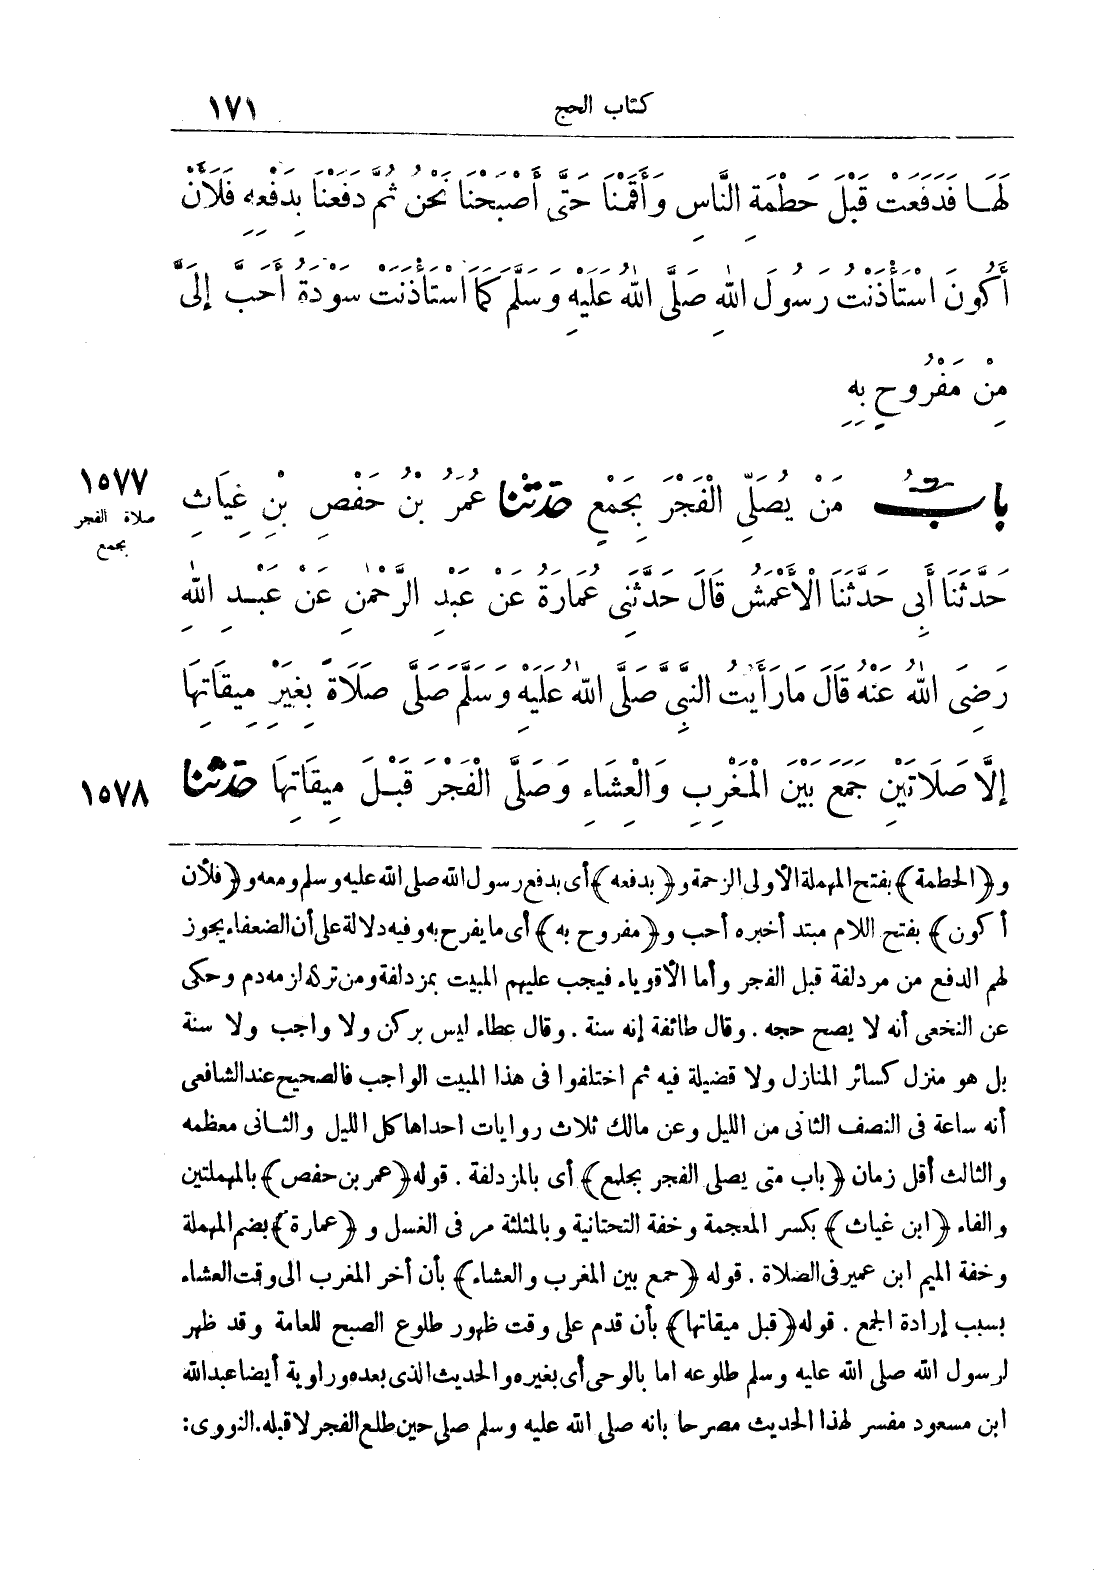 كتاب الحج
١٧١
لَهَا فَدَفَعَتْ قَبْلَ حَطْمَةِ النَّاسِ وَأَقَمْنَا حَتَّى أَصْبَحْنَا نَحْنُ ثُمَّ دَفَعْنَا بِدَفْعِهِ فَلَأَنْ
أَكُونَ اسْتَأْذَنْتُ رَسُولَ اللهِ صَلَّى اللهُ عَلَيْهِ وَسَلَّمَ كَمَا اسْتَأْذَنَتْ سَوْدَةُ أَحَبُّ إِلَىَّ
مِنْ مَفْرُوحٍ بِهِ
بابُ مَنْ يُصَلِّى الْفَجْرَ بِجَمْعٍ حَدَّثَنَا عُمَرُ بْنُ حَفْصِ بْنِ غِيَاثٍ
١٥٧٧
صلاة الفجر
بجمع
حَدَّثَنَا أَبِى حَدَّثَنَا الْأَعْمَشُ قَالَ حَدَّثَنِى عُمَارَةُ عَنْ عَبْدِ الرَّحْمٰنِ عَنْ عَبْدِ اللهِ
رَضِىَ اللهُ عَنْهُ قَالَ مَا رَأَيْتُ النَّبِىَّ صَلَّى اللهُ عَلَيْهِ وَسَلَّمَ صَلَّى صَلَاةً بِغَيْرِ مِيقَاتِهَا
إِلَّا صَلَاتَيْنِ جَمَعَ بَيْنَ الْمَغْرِبِ وَالْعِشَاءِ وَصَلَّى الْفَجْرَ قَبْلَ مِيقَاتِهَا حَدَّثَنَا
١٥٧٨
و﴿الحطمة﴾ بفتح المهملة الأولى الزحمة و﴿بدفعه﴾ أى بدفع رسول الله صلى الله عليه وسلم ومعه و﴿فلأن
أكون﴾ بفتح اللام مبتدأ خبره أحب و﴿مفروح به﴾ أى ما يفرح به وفيه دلالة على أن الضعفاء يجوز
لهم الدفع من مزدلفة قبل الفجر وأما الأقوياء فيجب عليهم المبيت بمزدلفة ومن تركه لزمه دم وحكى
عن النخعى أنه لا يصح حجه . وقال طائفة إنه سنة . وقال عطاء ليس بركن ولا واجب ولا سنة
بل هو منزل كسائر المنازل ولا فضيلة فيه ثم اختلفوا فى هذا المبيت الواجب فالصحيح عند الشافعى
أنه ساعة فى النصف الثانى من الليل وعن مالك ثلاث روايات احداها كل الليل والثانى معظمه
والثالث أقل زمان ﴿باب متى يصلى الفجر بجمع﴾ أى بالمزدلفة . قوله ﴿عمر بن حفص﴾ بالمهملتين
والفاء ﴿ابن غياث﴾ بكسر المعجمة وخفة التحتانية وبالمثلثة مر فى الغسل و ﴿عمارة﴾ بضم المهملة
وخفة الميم ابن عمير فى الصلاة . قوله ﴿جمع بين المغرب والعشاء﴾ بأن أخر المغرب الى وقت العشاء
بسبب إرادة الجمع . قوله ﴿قبل ميقاتها﴾ بأن قدم على وقت ظهور طلوع الصبح للعامة وقد ظهر
لرسول الله صلى الله عليه وسلم طلوعه اما بالوحى أى بغيره والحديث الذى بعده وراوية أيضا عبد الله
ابن مسعود مفسر لهذا الحديث مصرحا بانه صلى الله عليه وسلم صلى حين طلع الفجر لا قبله. النووى: